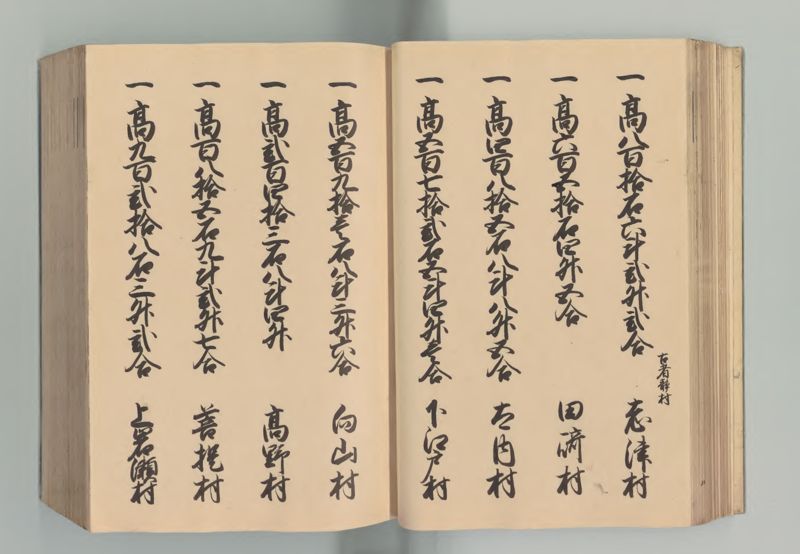 一高八百拾石六斗弐升弐合
古者静村
志津村
一高六百五拾石四升五合
田崎村
一高四百八拾五石八斗八升五合
本内村
一高五百七拾弐石五斗四升壱合
下江戸村
一高五百九拾壱石八斗三升六合
向山村
一高弐百四拾三石八斗四升
高野村
一高百八拾五石九斗弐升七合
菩提村
一高九百弐拾八石三升弐合
上岩瀬村